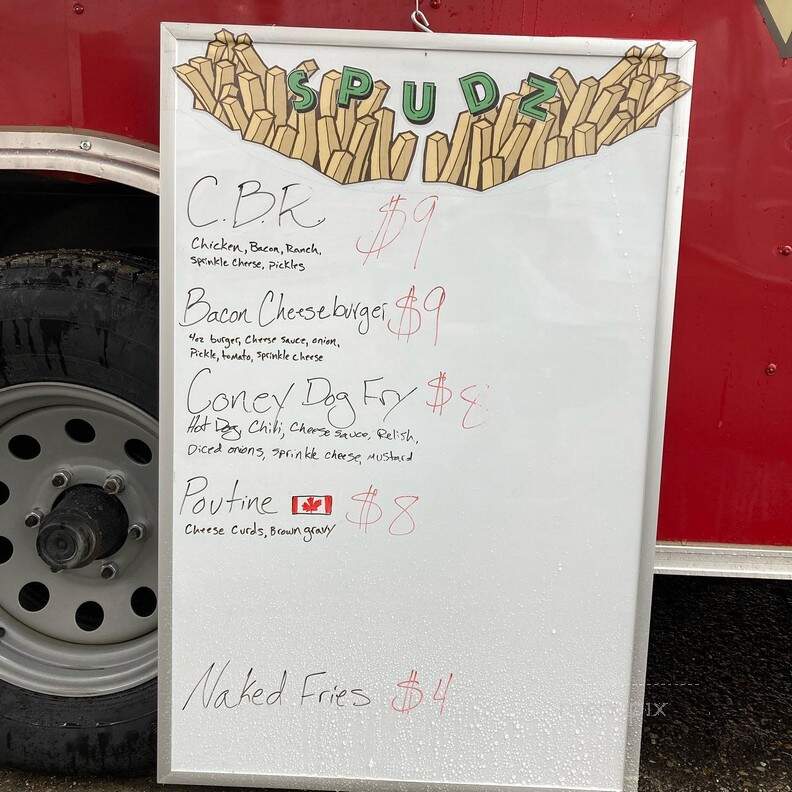 SPUDZ
C.B.R. $9
Chicken, Bacon, Ranch,
sprinkle cheese, pickles
Bacon Cheeseburger $9
4oz burger, Cheese sauce, onion,
Pickle, tomato, sprinkle cheese
Coney Dog Fry $8
Hot Dog, Chili, Cheese sauce, Relish,
Diced onions, sprinkle cheese, Mustard
Poutine $8
Cheese Curds, Brown gravy
Naked Fries $4